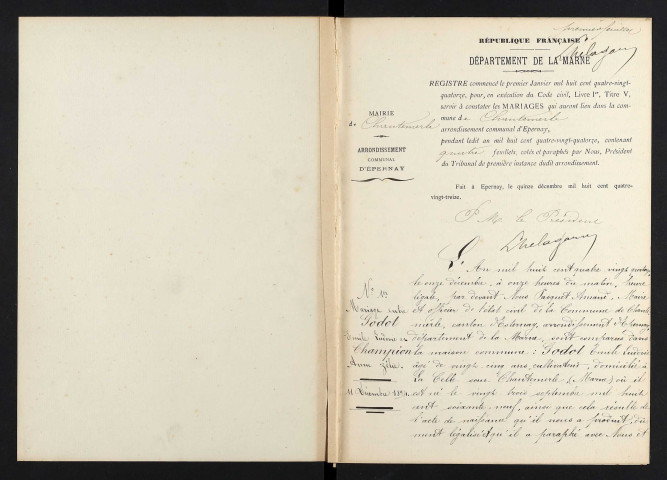 premier feuillet
RÉPUBLIQUE FRANÇAISE
DÉPARTEMENT DE LA MARNE
REGISTRE commencé le premier Janvier mil huit cent quatre-vingt-
quatorze, pour, en exécution du Code civil, Livre Ier, Titre V,
servir à constater les MARIAGES qui auront lieu dans la com-
mune de Chantemerle
arrondissement communal d'Epernay,
pendant ledit an mil huit cent quatre-vingt-quatorze, contenant
quatre feuillets, cotés et paraphés par Nous, Président
du Tribunal de première instance dudit arrondissement.
MAIRIE
de Chantemerle
ARRONDISSEMENT
COMMUNAL
D'ÉPERNAY
Fait à Epernay, le quinze décembre mil huit cent quatre-
vingt-treize.
P. M. le Président
L'An mil huit cent quatre vingt quatorze
le onze décembre, à onze heures du matin, heure
légale, par devant Nous Paquot Amant, Maire
et officier de l'état civil de la Commune de Chante
merle, canton d'Esternay, arrondissement d'Epernay,
département de la Marne, sont comparus dans
la maison commune : Godot Emile Lucien
âgé de vingt cinq ans, cultivateur, domicilié à
La Celle sous Chantemerle (Marne) où il
est né le vingt trois septembre mil huit
cent soixante neuf, ainsi que cela résulte de
l'acte de naissance qu'il nous a produit, dû
ment légalisé et qu'il a paraphé avec Nous et
Mariage entre
Godot
Emile Lucien et
Champion
11 Décembre 1894